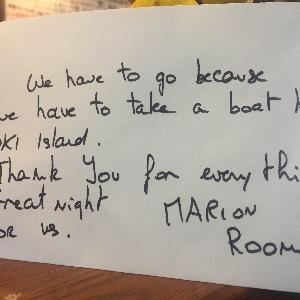 We have to go because
we have to take a boat
OKI Island.
Thank You for everythi
Great night
for us.
MARION
ROOM